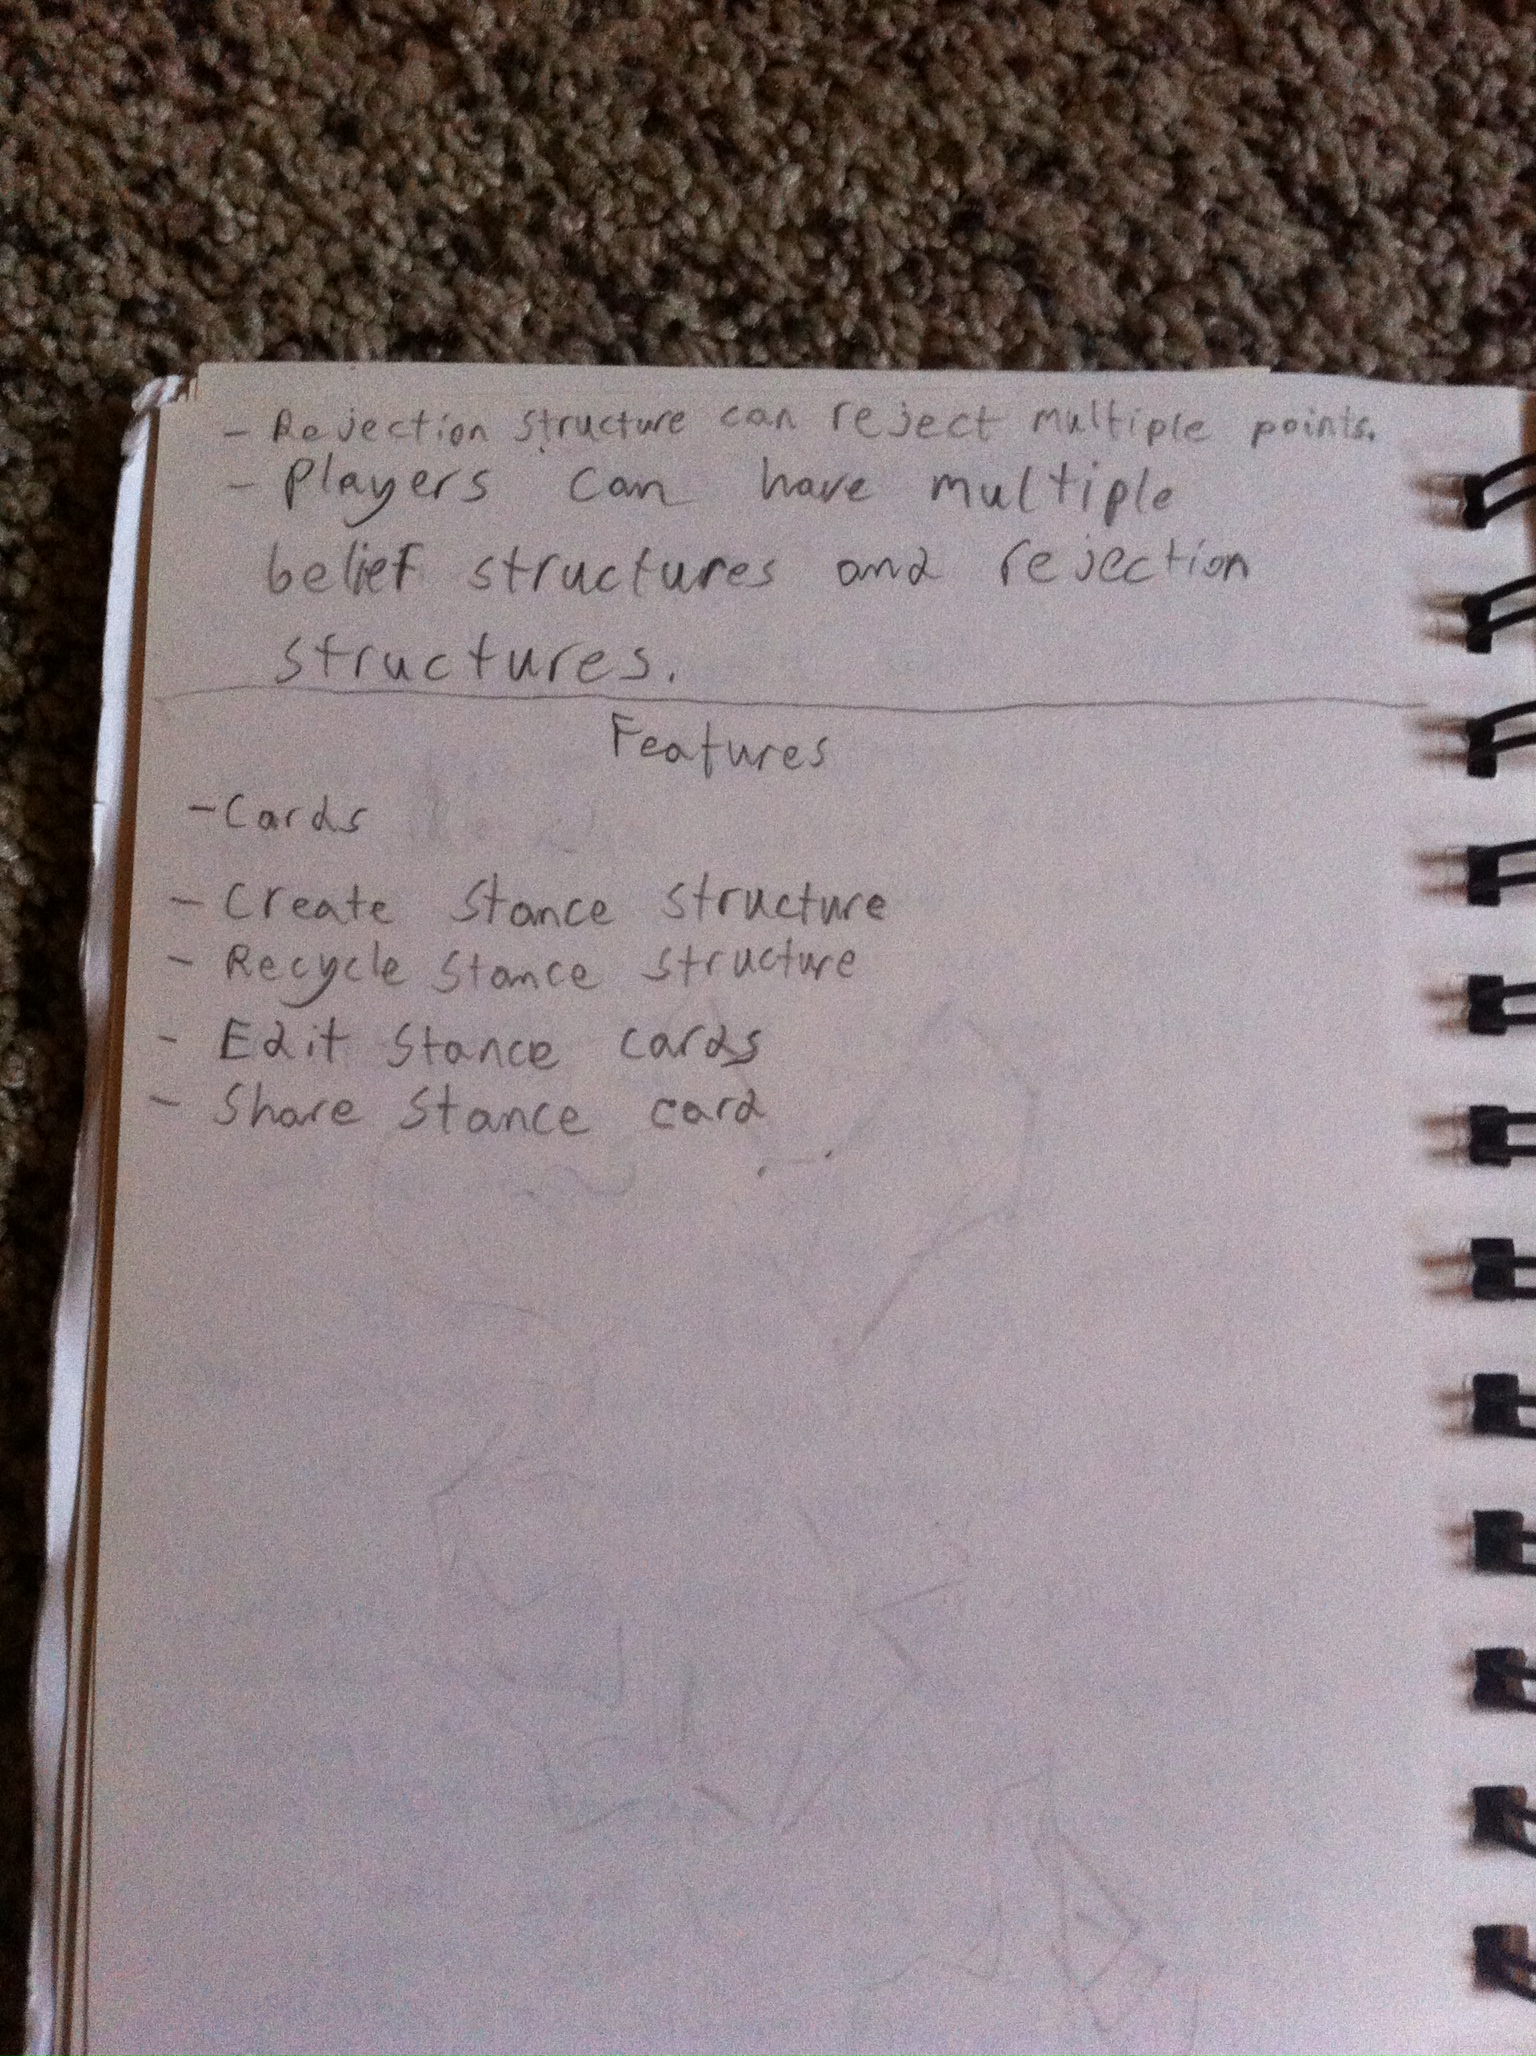 - Rejection structure can reject multiple points.
- Players can have multiple
belief structures and rejection
structures.
Features
- Cards
- Create Stance structure
- Recycle Stance structure
- Edit Stance cards
- Share Stance card